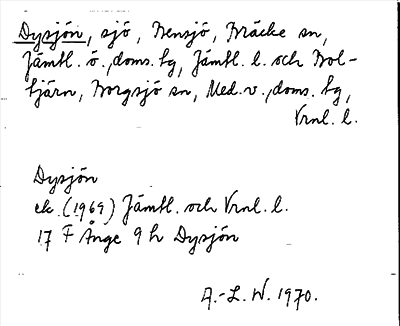 Dysjön, sjö, Bensjö, Bräcke sn,
Jämtl. ö., doms. hg, Jämtl. l. och Bol-
tjärn, Borgsjö sn, Med. v., doms. hg,
Vrnl. l.
Dysjön
ek. (1969) Jämtl. och Vrnl. l.
17 F Ånge 9 h Dysjön
A.-L. W. 1970.